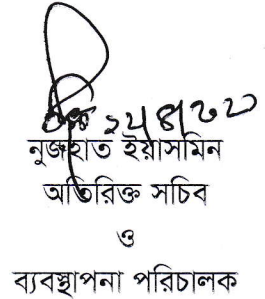 নুজহাত ইয়াসমিন
অতিরিক্ত সচিব
ও
ব্যবস্থাপনা পরিচালক